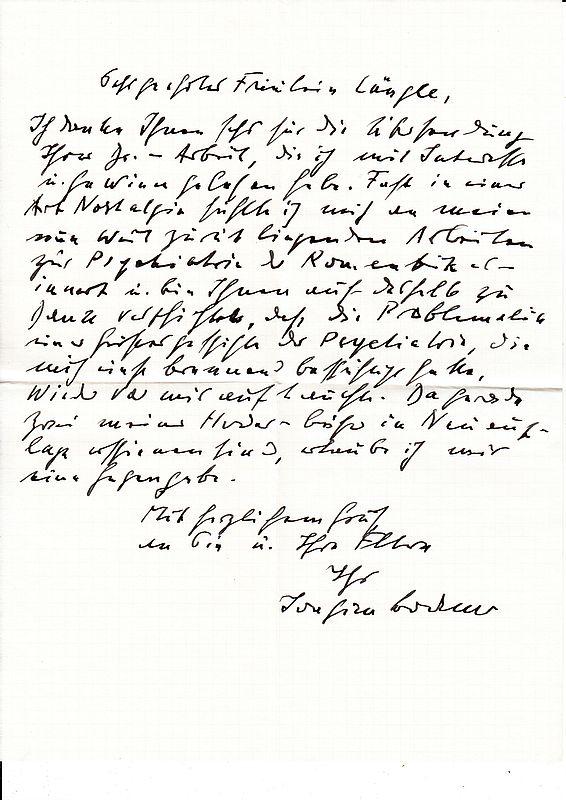 Sehr geehrtes Fräulein Längle,
Ich danke Ihnen sehr für die Übersendung
Ihrer Dr.-Arbeit, die ich mit Interesse
u. Gewinn gelesen habe. Fast in einer
Art Nostalgie fühlte ich mich an meine
nun weit zurück liegenden Arbeiten
zur Psychiatrie der Romantik er-
innert u. bin Ihnen auch deshalb zu
Dank verpflichtet, daß die Problematik
einer Geschichte der Psychiatrie, die
mich einst brennend beschäftigt hatte,
wieder vor mir auftauchte. Da gerade
zwei meiner Herder-bücher in Neuauf-
lage erschienen sind, erlaube ich mir
eine Gegengabe.
Mit herzlichem Gruß
an Sie u. Ihre Eltern
Ihr